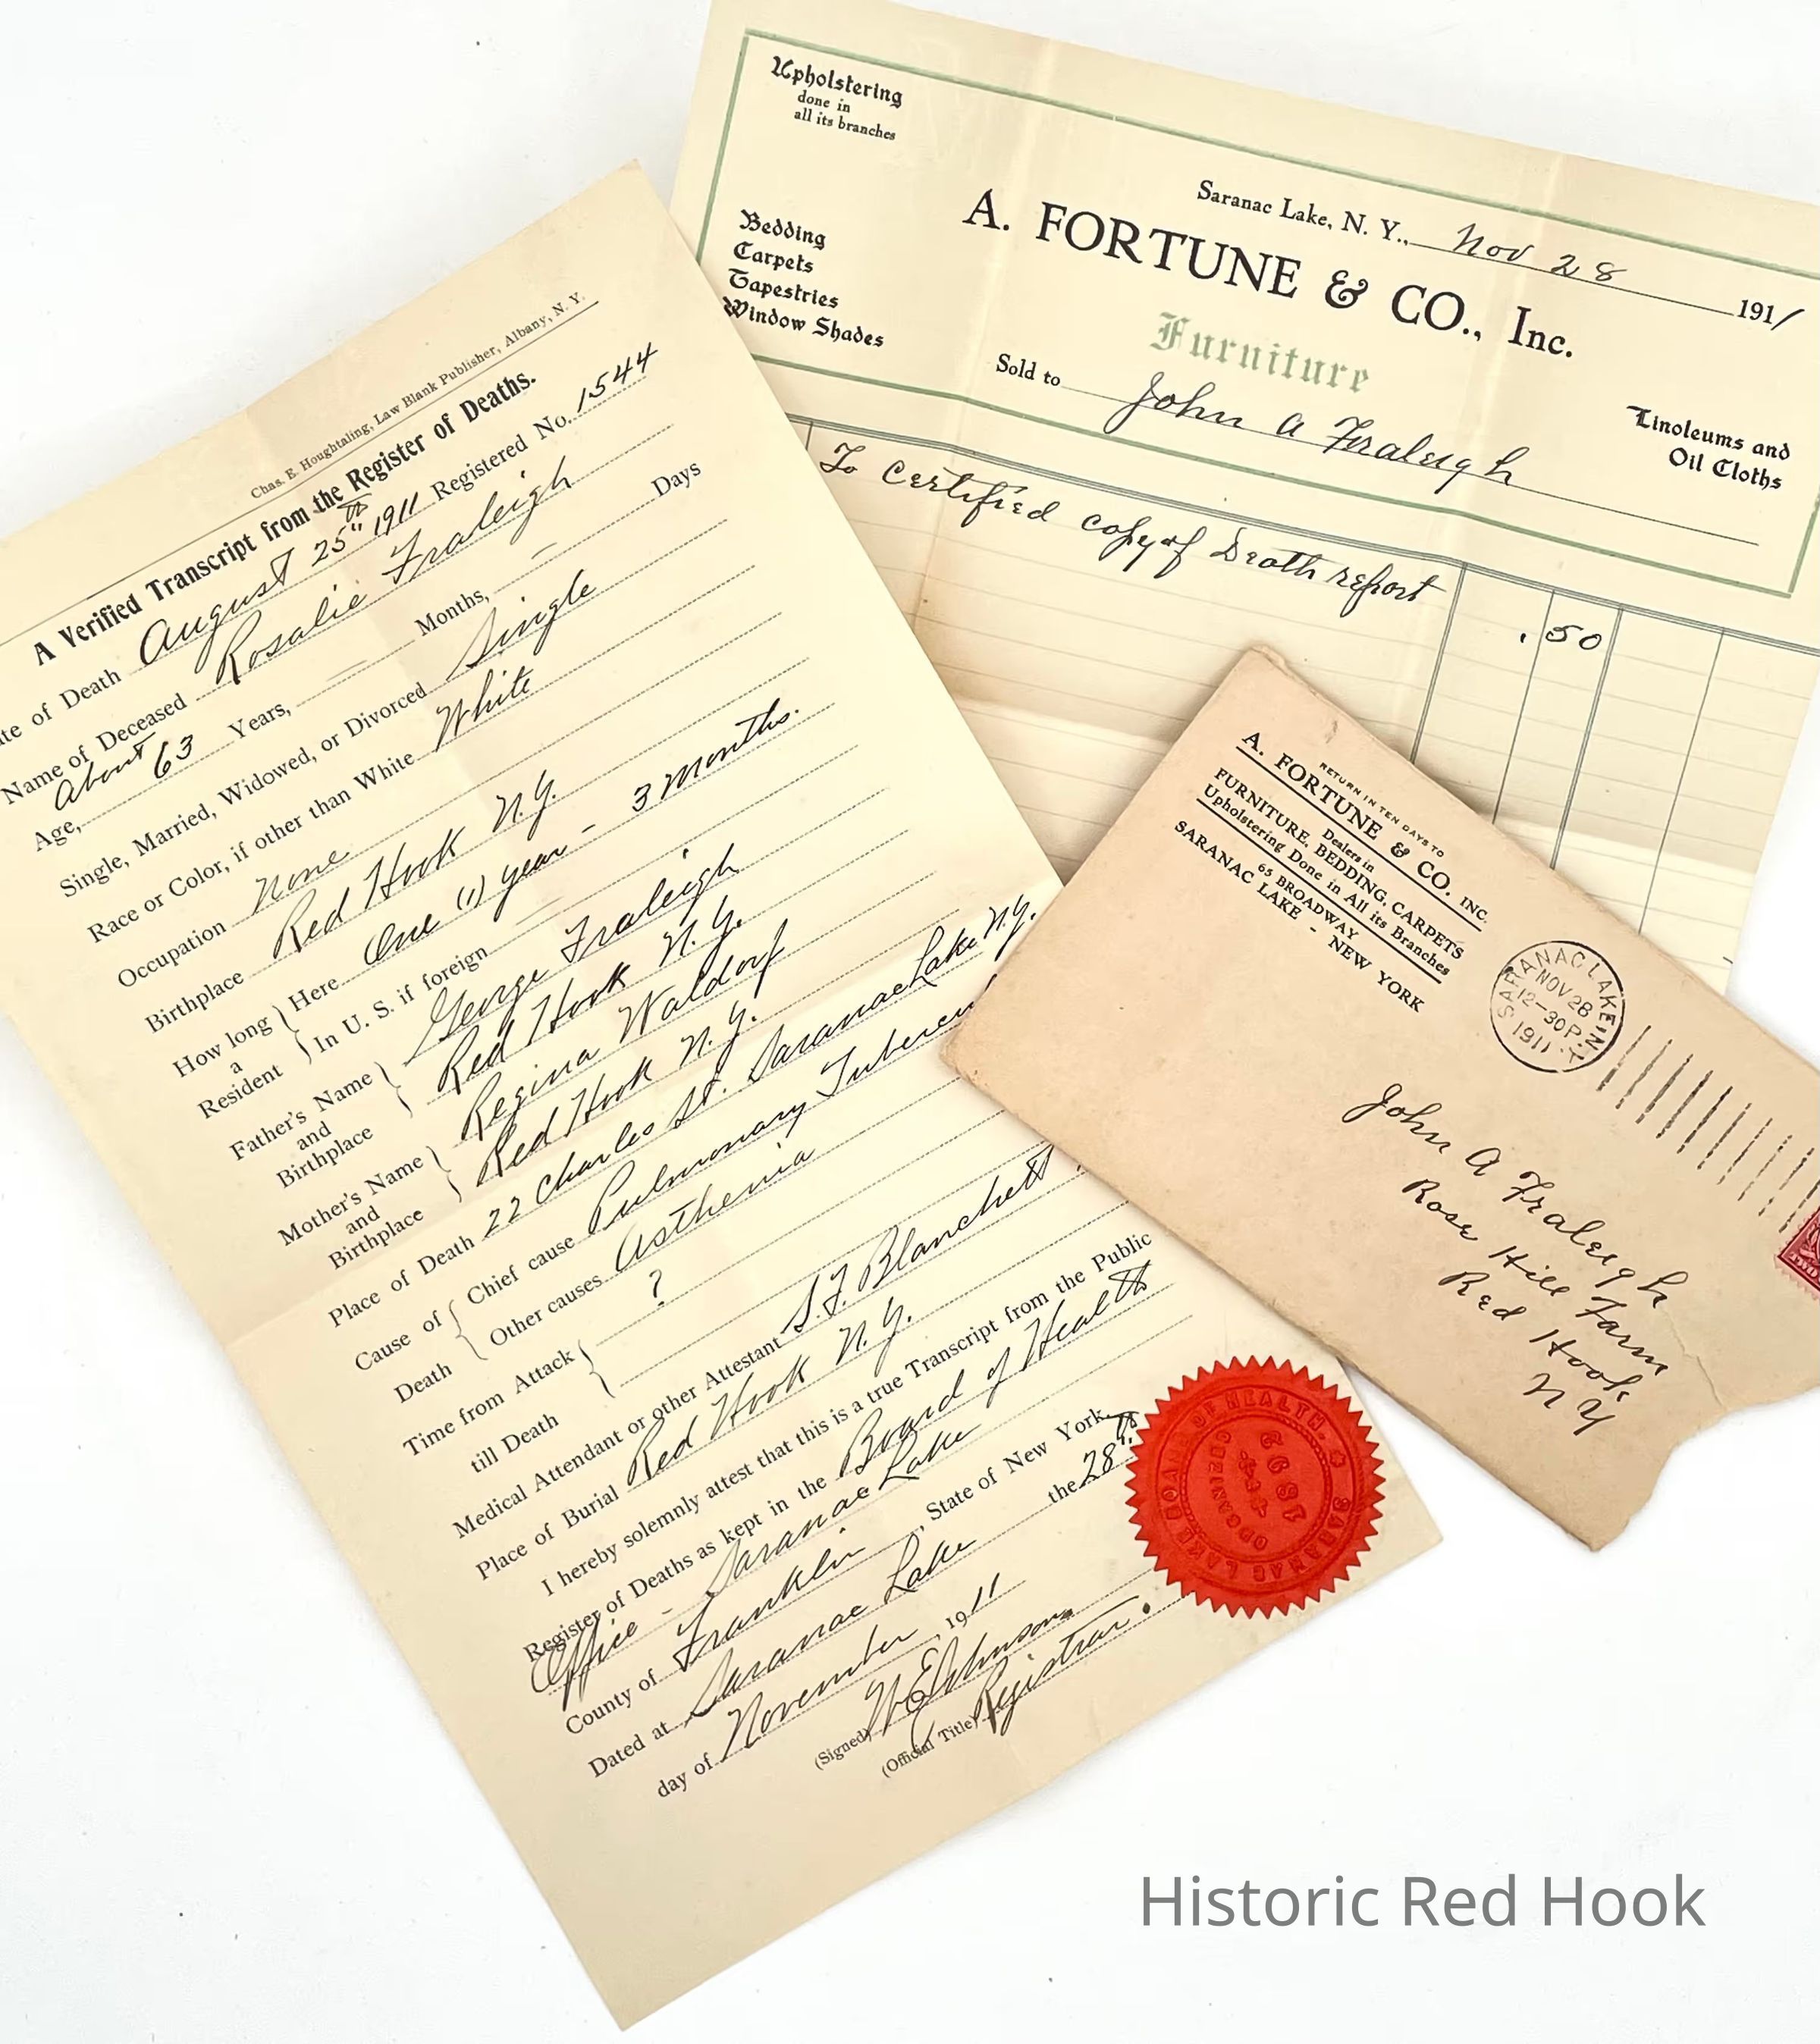 Chas. E. Houghtaling, Law Blank Publisher, Albany, N. Y.
A Verified Transcript from the Register of Deaths.
te of Death August 25" th 1911 Registered No. 1544
Name of Deceased Rosalie Fraleigh
Age, About 63 Years, — Months, — Days
Single, Married, Widowed, or Divorced Single
Race or Color, if other than White White
Occupation None
Birthplace Red Hook N.Y.
How long a Resident } Here One (1) year - 3 months.
In U. S. if foreign —
Father's Name and Birthplace } George Fraleigh
Red Hook N.Y.
Mother's Name and Birthplace } Regina Waldorf
Red Hook N.Y.
Place of Death 22 Charles St. Saranac Lake N.Y.
Cause of Death { Chief cause Pulmonary
Other causes Asthenia
Time from Attack till Death } ?
Medical Attendant or other Attestant S.F. Blanchett
Place of Burial Red Hook N.Y.
I hereby solemnly attest that this is a true Transcript from the Public
Register of Deaths as kept in the Board of Health
Office - Saranac Lake
County of Franklin, State of New York.
Dated at Saranac Lake the 28" th
day of November, 1911
(Signed)
(Official Title) Registrar.
SARANAC LAKE BOARD OF HEALTH.
ORGANIZED
1892
Upholstering
done in
all its branches
Bedding
Carpets
Tapestries
Window Shades
Saranac Lake, N. Y., Nov 28 1911
A. FORTUNE & CO., Inc.
Furniture
Sold to John A Fraleigh
Linoleums and
Oil Cloths
To Certified copy of Death report .50
RETURN IN TEN DAYS TO
A. FORTUNE & CO. INC.
Dealers in
FURNITURE, BEDDING, CARPETS
Upholstering Done in All its Branches
65 BROADWAY
SARANAC LAKE - NEW YORK
SARANAC LAKE N.Y.
NOV 28
12-30P
1911
John A Fraleigh
Rose Hill Farm
Red Hook
N Y
Historic Red Hook